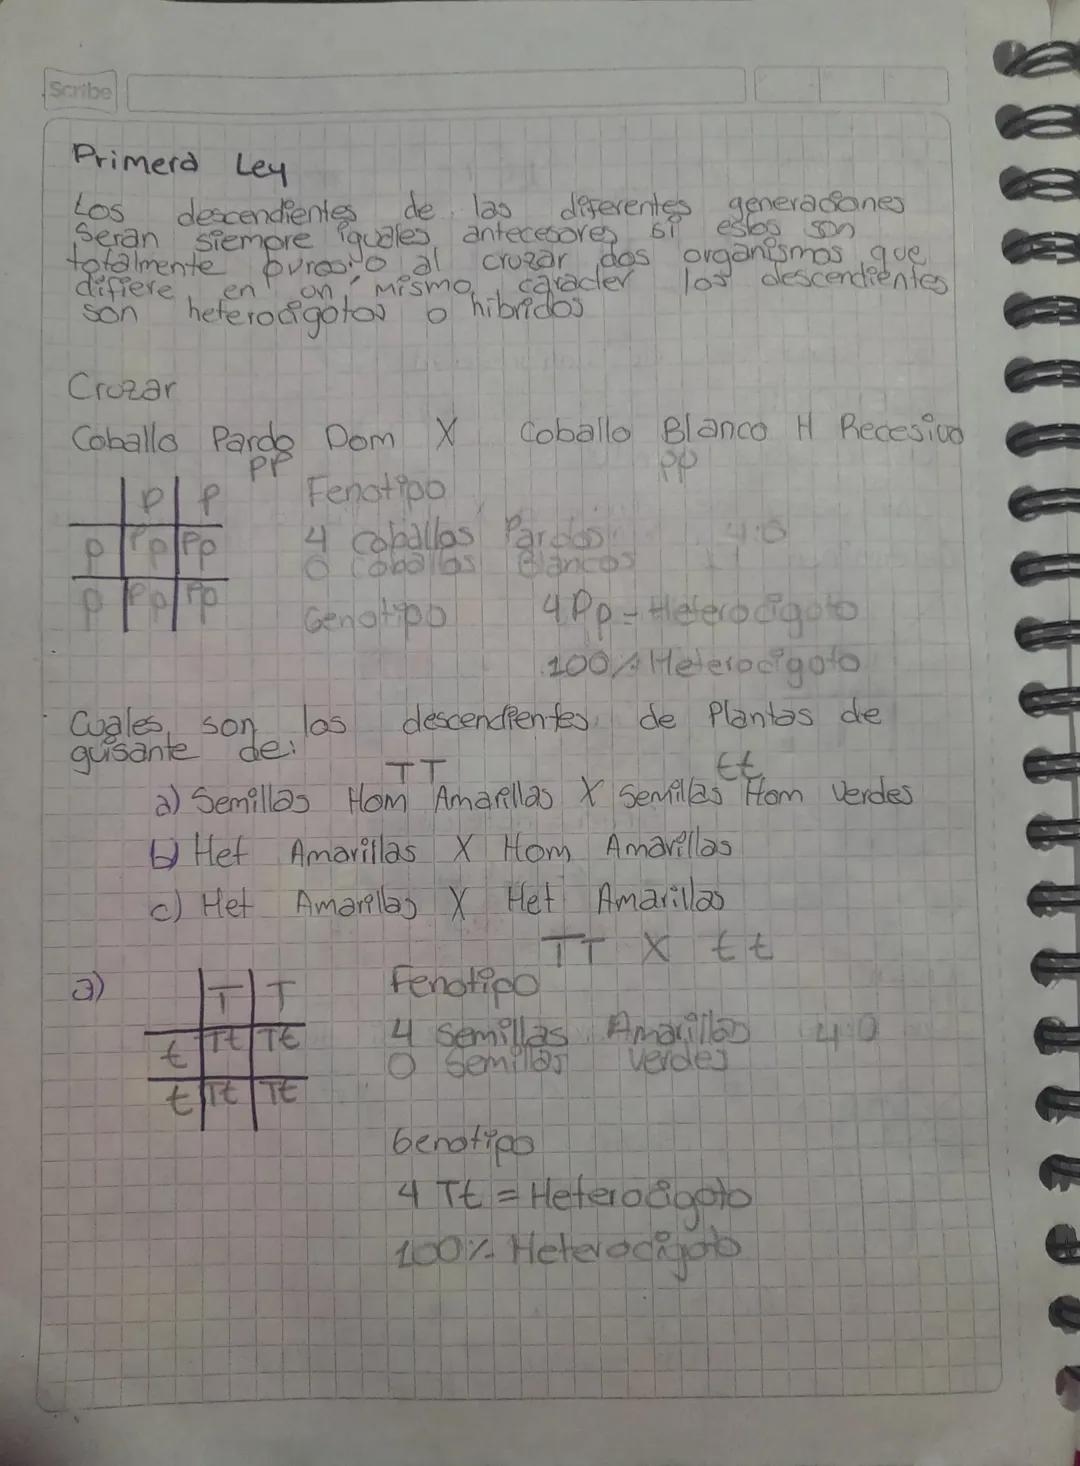 Scribe
Primera Ley
Los descendientes de las diferentes generaciones
Seran siempre iguales, antecesores si estos son
totalmente puros, o al cruzar dos organismos que
difiere en un mismo caracter los descendientes
son heterocigotos o hibridos
Cruzar
Coballo Pardo Dom X Coballo Blanco H Recesivo
PP pp
P P
p Pp Pp
p Pp Pp
Fenotipo
4 coballos Pardos 4:0
0 coballos Blancos
Genotipo 4Pp = Heterocigoto
100% Heterocigoto
Cuales son los descendientes de Plantas de
guisante de:
TT tt
a) Semillas Hom Amarillas X Semillas Hom Verdes
b) Het Amarillas X Hom Amarillas
c) Het Amarillas X Het Amarillas
TT X tt
a)
T T
t Tt Tt
t Tt Tt
Fenotipo
4 Semillas Amarillas 4:0
0 Semillas verdes
Genotipo
4 Tt = Heterocigoto
100% Heterocigoto